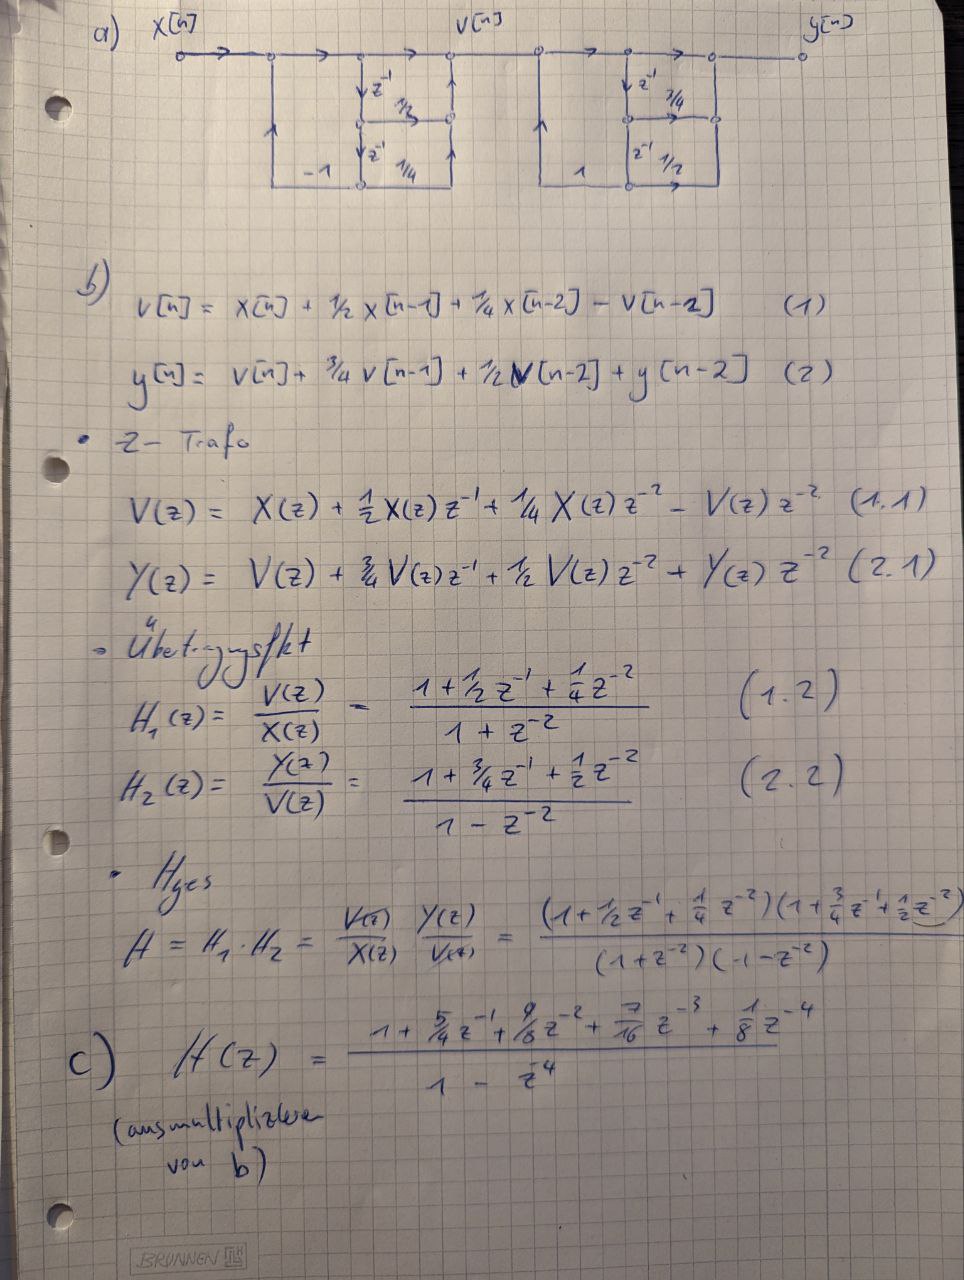 a) X[n] V[n] y[n]
z⁻¹ 1/2 z⁻¹ 3/4
-1 z⁻¹ 1/4 1 z⁻¹ 1/2
b)
V[n] = X[n] + 1/2 x[n-1] + 1/4 x[n-2] - V[n-2] (1)
y[n] = V[n] + 3/4 V[n-1] + 1/2 V[n-2] + y[n-2] (2)
• Z- Trafo
V(z) = X(z) + 1/2 X(z) z⁻¹ + 1/4 X(z) z⁻² - V(z) z⁻² (1.1)
Y(z) = V(z) + 3/4 V(z) z⁻¹ + 1/2 V(z) z⁻² + Y(z) z⁻² (2.1)
• Übertragungsfkt
H₁(z) = V(z)/X(z) = (1 + 1/2 z⁻¹ + 1/4 z⁻²)/(1 + z⁻²) (1.2)
H₂(z) = Y(z)/V(z) = (1 + 3/4 z⁻¹ + 1/2 z⁻²)/(1 - z⁻²) (2.2)
• Hges
H = H₁ · H₂ = V(z)/X(z) Y(z)/V(z) = (1 + 1/2 z⁻¹ + 1/4 z⁻²)(1 + 3/4 z⁻¹ + 1/2 z⁻²)/(1+z⁻²)(1-z⁻²)
c) H(z) = (1 + 5/4 z⁻¹ + 9/8 z⁻² + 7/16 z⁻³ + 1/8 z⁻⁴)/(1 - z⁻⁴)
(ausmultiplizieren
von b)
BRUNNEN